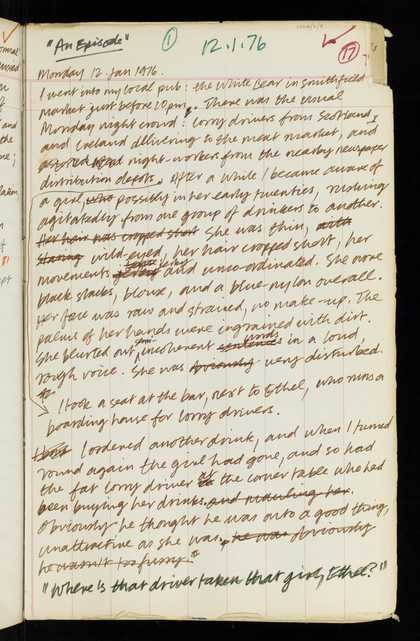 "An Episode" 1 12.1.76 17
Monday 12 Jan 1976.
I went into my local pub: the White Bear in Smithfield
Market just before 10pm. There was the usual
Monday night crowd: lorry drivers from Scotland,
and Ireland delivering to the meat market, and
night-workers from the nearby newspaper
distribution depots. After a while I became aware of
a girl, who possibly in her early twenties, rushing
agitatedly from one group of drinkers to another.
Her hair was cropped short She was thin, with
staring wild-eyed, her hair cropped short, her
movements jerky and unco-ordinated. She wore
black slacks, blouse, and a blue nylon overall.
Her face was raw and strained, no make-up. The
palms of her hands were ingrained with dirt.
She blurted out incoherent sentences words in a loud,
rough voice. She was obviously very disturbed.
I took a seat at the bar, next to Ethel, who runs a
boarding house for lorry drivers.
I ordered another drink, and when I turned
round again the girl had gone, and so had
the fat lorry driver at the corner table who had
been buying her drinks and mauling her.
Obviously he thought he was onto a good thing,
unattractive as she was, he was obviously
he wasn't too fussy.
"Where's that driver taken that girl, Ethel?"